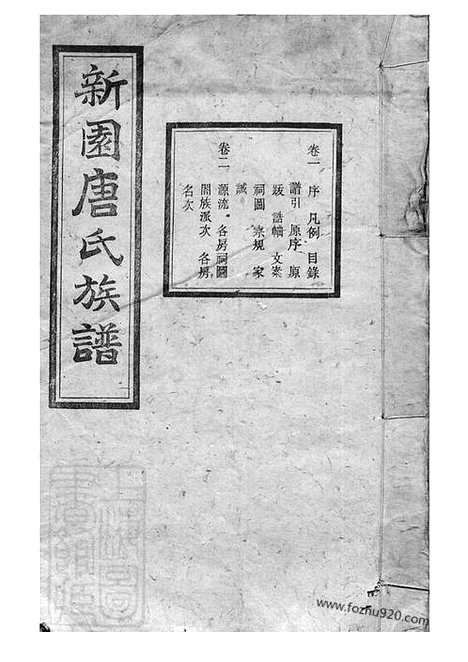 新園唐氏族譜
卷一 序 凡例 目錄
譜引 原序 原
跋 誥軸 文案
祠圖 宗規 家
誡
卷二 源流 各房祠圖
閤族派次 各房
名次
www.fozhu920.com